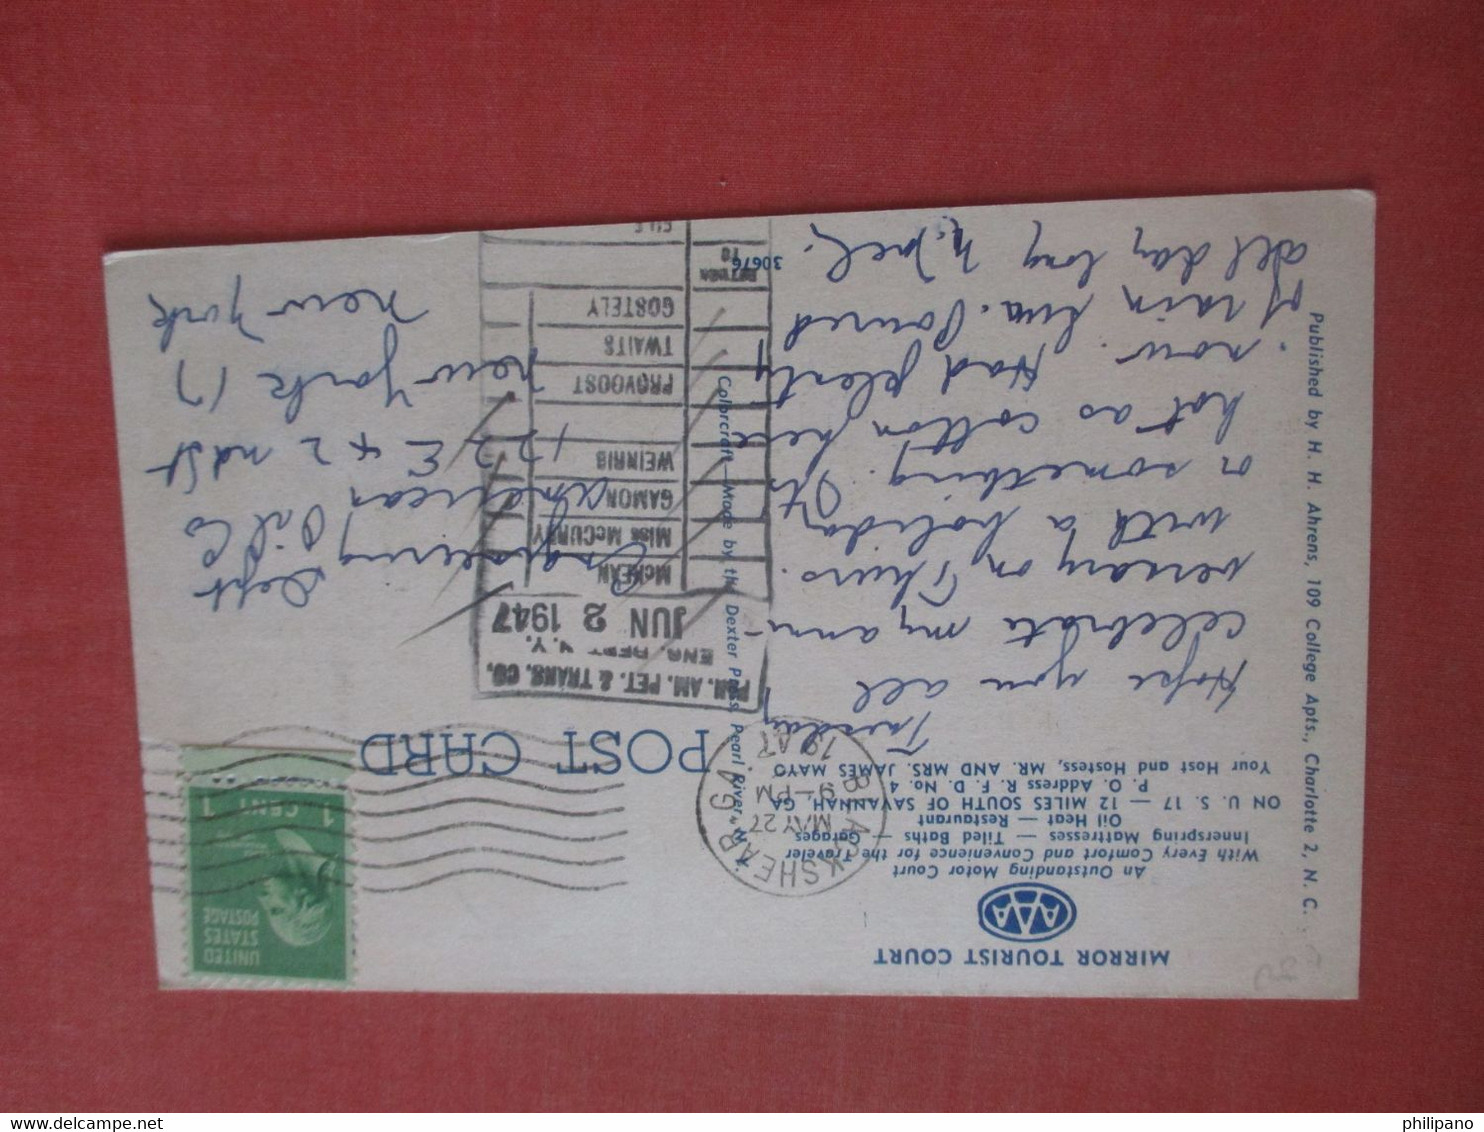 MIRROR TOURIST COURT
AAA
An Outstanding Motor Court
With Every Comfort and Convenience for the Traveler
Innerspring Mattresses — Tiled Baths — Garages
Oil Heat — Restaurant
ON U. S. 17 — 12 MILES SOUTH OF SAVANNAH, GA.
P. O. Address R. F. D. No. 4,
Your Host and Hostess, MR. AND MRS. JAMES MAYO
Tuesday
Hope you all
celebrate my anni-
versary on Thurs.
with a holiday
or something. Its
hot as cotton here
now. Had plenty
of rain tho. Poured
all day long
30676
Published by H. H. Ahrens, 109 College Apts., Charlotte 2, N. C.
Colorcraft—Made by the Dexter Press, Pearl River, N.
POST CARD
BLACKSHEAR GA.
MAY 27
9-PM
19 47
UNITED
STATES
POSTAGE
1 CENT 1
PAN. AM. PET. & TRANS. CO.
ENG. DEPT. N.Y.
JUN 2 1947
McKEAN
MISS McCURRY
GAMON
WEINRIB
PROVOOST
TWAITS
GOSTELY
RETURN
TO
FILE
Engineering Dept
American Oil Co
122 E 42nd St
New York (17)
New York
philipano